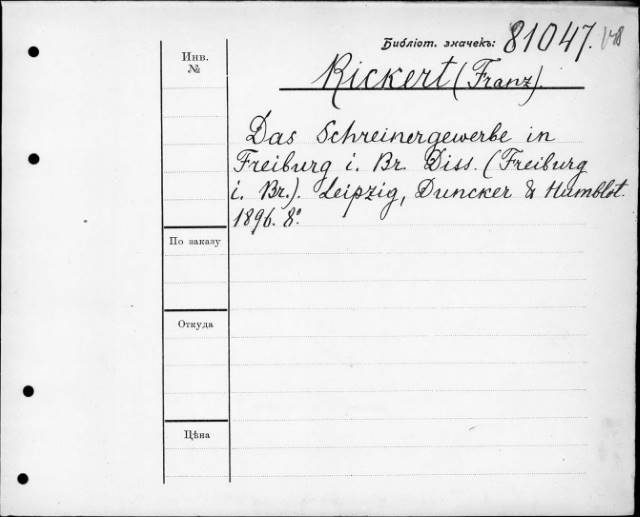 Библіот. значекъ: 81047.
Инв.
№
Rickert (Franz).
Das Schreinergewerbe in
Freiburg i. Br. Diss. (Freiburg
i. Br.). Leipzig, Duncker & Humblot.
1896. 8º.
По заказу
Откуда
Цѣна